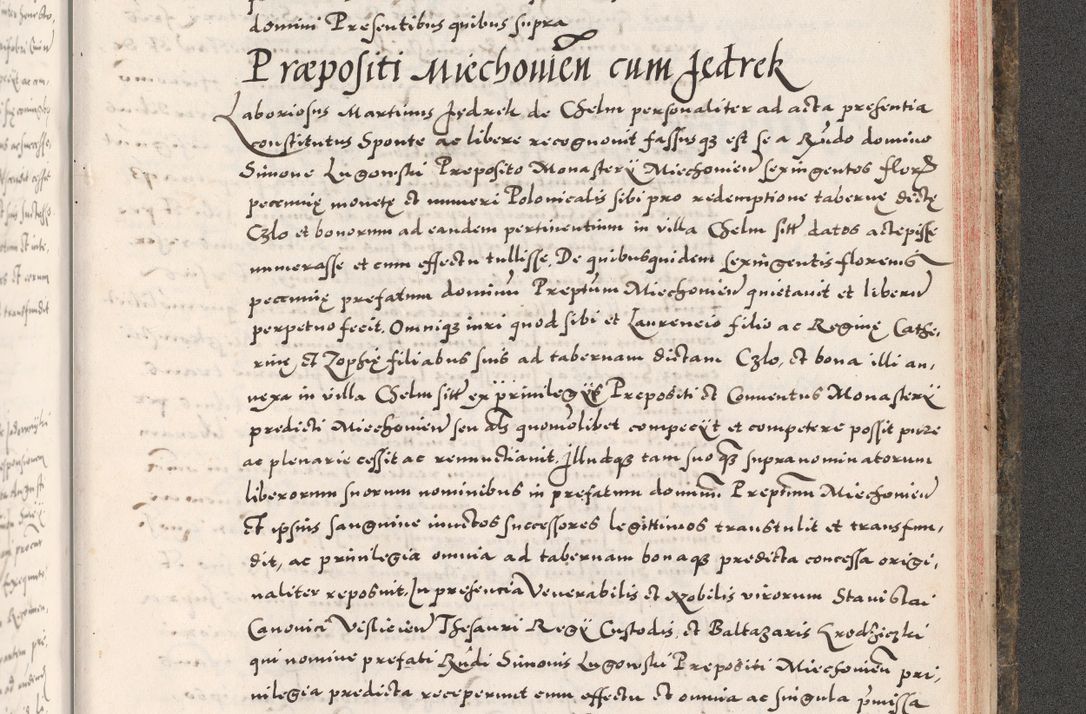 domini Presentibus quibus supra
Præpositi Miechovien cum Jedrek
Laboriosus Martinus Jędrek de Chelm personaliter ad acta presentia
constitutus Sponte ac libere recognovit fassusqz est se a Rndo domino
Simone Lugowski Preposito Monasterÿ Miechovien sexingentos flor
pecunię monetę et numeri Polonicalis sibi pro redemptione tabernę dictę
Czlo et bonorum ad eandem pertinentium in villa Chelm sitt datos accepisse
numerasse et cum effectu tullisse, De quibusquidem sexingentis florenis
pecunię prefatum dominũ Preptum Miechovien quietavit et liberũ
perpetuo fecit, Omniqz iuri quod sibi et Laurencio filio ac Reginę, Cathe,
rinę et Zophię filiabus suis ad tabernam dictam Czlo, et bona illi an,
nexa in villa Chelm sitt ex privilegÿs Prepositi et Conventus Monasterÿ
predicti Miechovien seu als quomolibet competÿt et competere possit pure
ac plenarie cessit ac renunctiavit, Illudqz tam suo qz supranominatorum
liberorum suorum nominibus in prefatum dominum Preptum Miechovien
et ipsius sanguine iunctos successores legittimos transtulit et transfun,
dit, ac privilegia omnia ad tabernam bonaqz predicta concessa origi,
naliter reposuit, In presencia Venerabilis et Nobilis virorum Stanislai
Canonici Vislicien Thesauri Regÿ Custodis, et Baltazaris Krodziczki
qui nomine prefati Rndi Simonis Lugowski Prepositi Miechovien pri,
vilegia predicta receperunt cum effectu et omnia ac singula pmissa